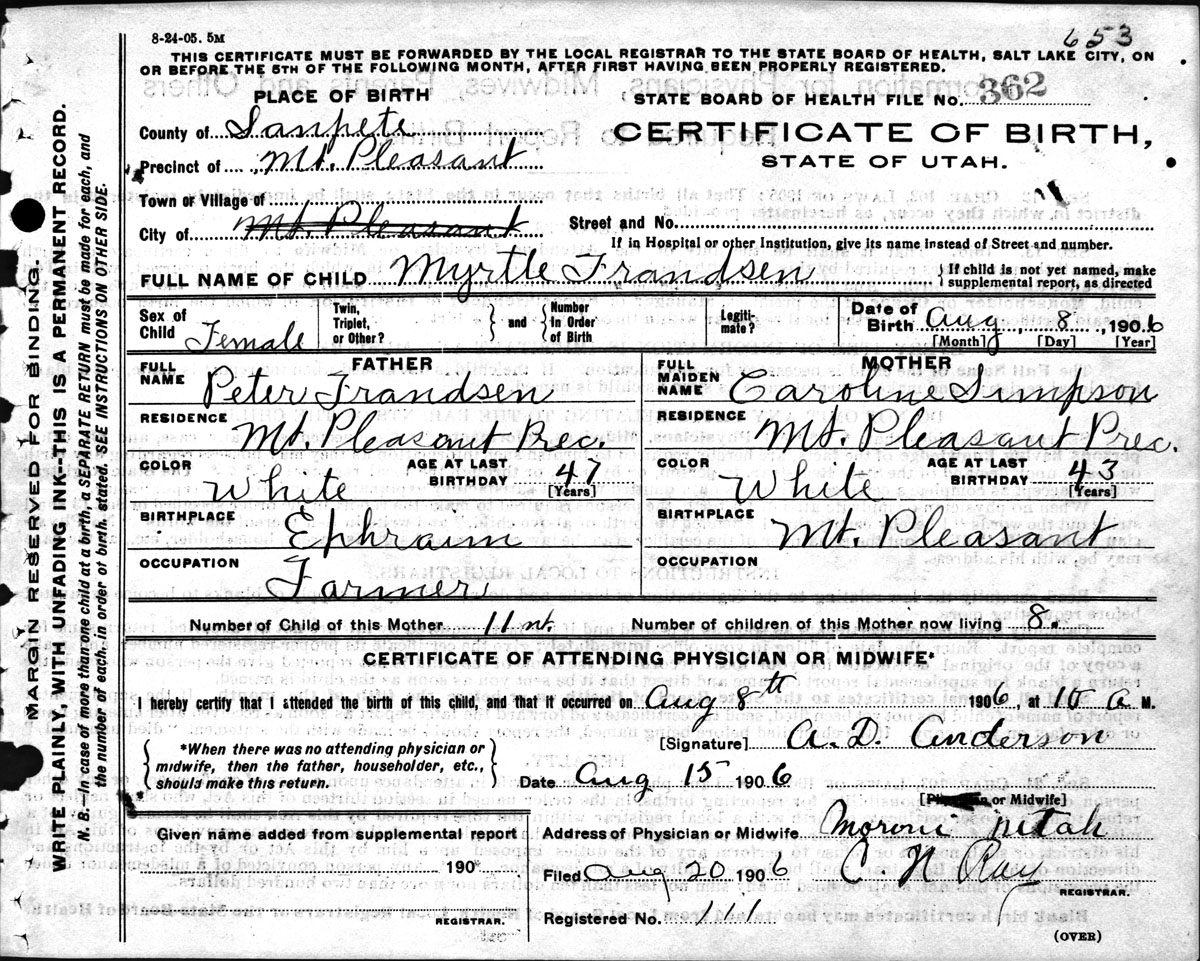 653
8-24-05. 5M
THIS CERTIFICATE MUST BE FORWARDED BY THE LOCAL REGISTRAR TO THE STATE BOARD OF HEALTH, SALT LAKE CITY, ON
OR BEFORE THE 5TH OF THE FOLLOWING MONTH, AFTER FIRST HAVING BEEN PROPERLY REGISTERED.
PLACE OF BIRTH
STATE BOARD OF HEALTH FILE NO. 362
County of Sanpete
CERTIFICATE OF BIRTH,
Precinct of Mt. Pleasant
STATE OF UTAH.
Town or Village of
City of Mt. Pleasant
Street and No.
If in Hospital or other Institution, give its name instead of Street and number.
FULL NAME OF CHILD Myrtle Frandsen
{ If child is not yet named, make
supplemental report, as directed
Sex of Child Female
Twin, Triplet, or Other? } and { Number in Order of Birth
Legitimate?
Date of Birth Aug 8, 1906
[Month] [Day] [Year]
FATHER
FULL NAME Peter Frandsen
RESIDENCE Mt. Pleasant Prec.
COLOR White
AGE AT LAST BIRTHDAY 47
[Years]
BIRTHPLACE Ephraim
OCCUPATION Farmer
MOTHER
FULL MAIDEN NAME Caroline Simpson
RESIDENCE Mt. Pleasant Prec.
COLOR White
AGE AT LAST BIRTHDAY 43
[Years]
BIRTHPLACE Mt. Pleasant
OCCUPATION
Number of Child of this Mother 11
Number of children of this Mother now living 8.
CERTIFICATE OF ATTENDING PHYSICIAN OR MIDWIFE*
I hereby certify that I attended the birth of this child, and that it occurred on Aug 8th 1906, at 10 A M.
{ *When there was no attending physician or
midwife, then the father, householder, etc.,
should make this return. }
[Signature] A. D. Anderson
Date Aug 15 1906
[Physician or Midwife]
Given name added from supplemental report
190*
REGISTRAR.
Address of Physician or Midwife Moroni Utah
Filed Aug 20 1906 C. N. Ray
REGISTRAR.
Registered No. 111
(OVER)
MARGIN RESERVED FOR BINDING.
WRITE PLAINLY, WITH UNFADING INK--THIS IS A PERMANENT RECORD.
N. B. In case of more than one child at a birth, a SEPARATE RETURN must be made for each, and
the number of each, in order of birth, stated. SEE INSTRUCTIONS ON OTHER SIDE.